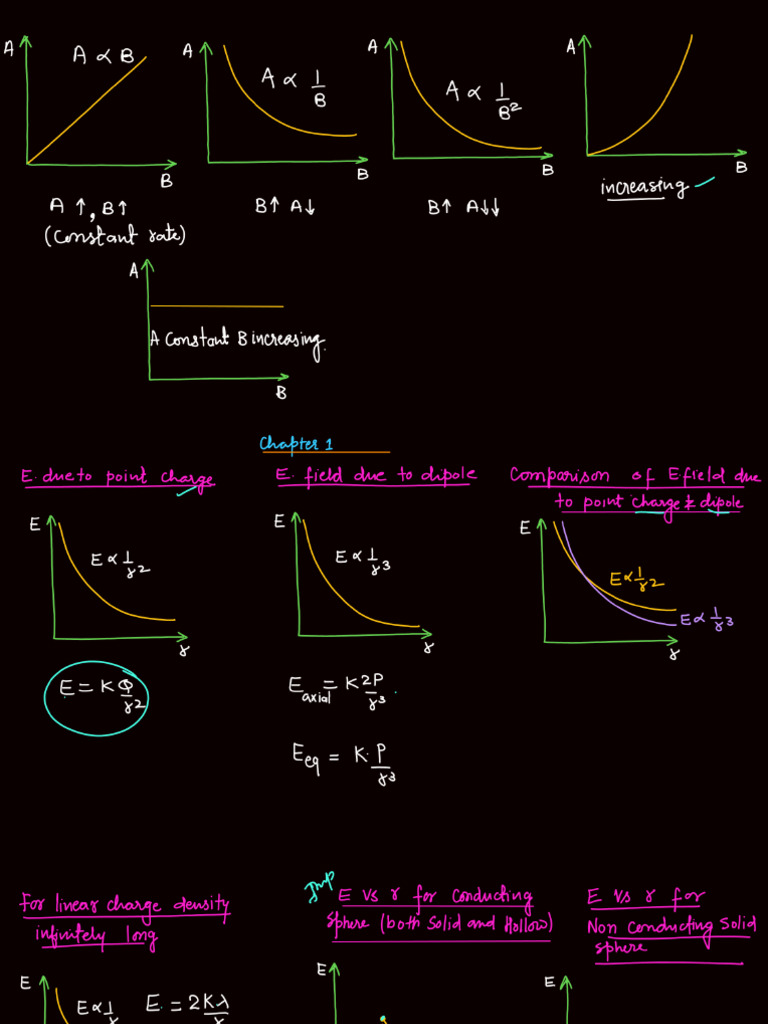 A
A ∝ B
B
A ↑, B↑
(Constant rate)
A
A ∝ 1/B
B
B↑ A↓
A
A ∝ 1/B²
B
B↑ A↓↓
A
B
increasing
A
A Constant B increasing.
B
Chapter 1
E. due to point charge
E
E ∝ 1/r2
r
E = K Q/r2
E. field due to dipole
E
E ∝ 1/r3
r
E axial = K 2P/r3.
Eeq = K. P/r3
Comparison of E.field due
to point charge & dipole
E
E ∝ 1/r2
E ∝ 1/r3
r
For linear charge density
infinitely long
E
E ∝ 1/r
E. = 2Kλ/r
Imp
E vs r for Conducting
Sphere (both Solid and Hollow)
E
E vs r for
Non Conducting Solid
sphere
E